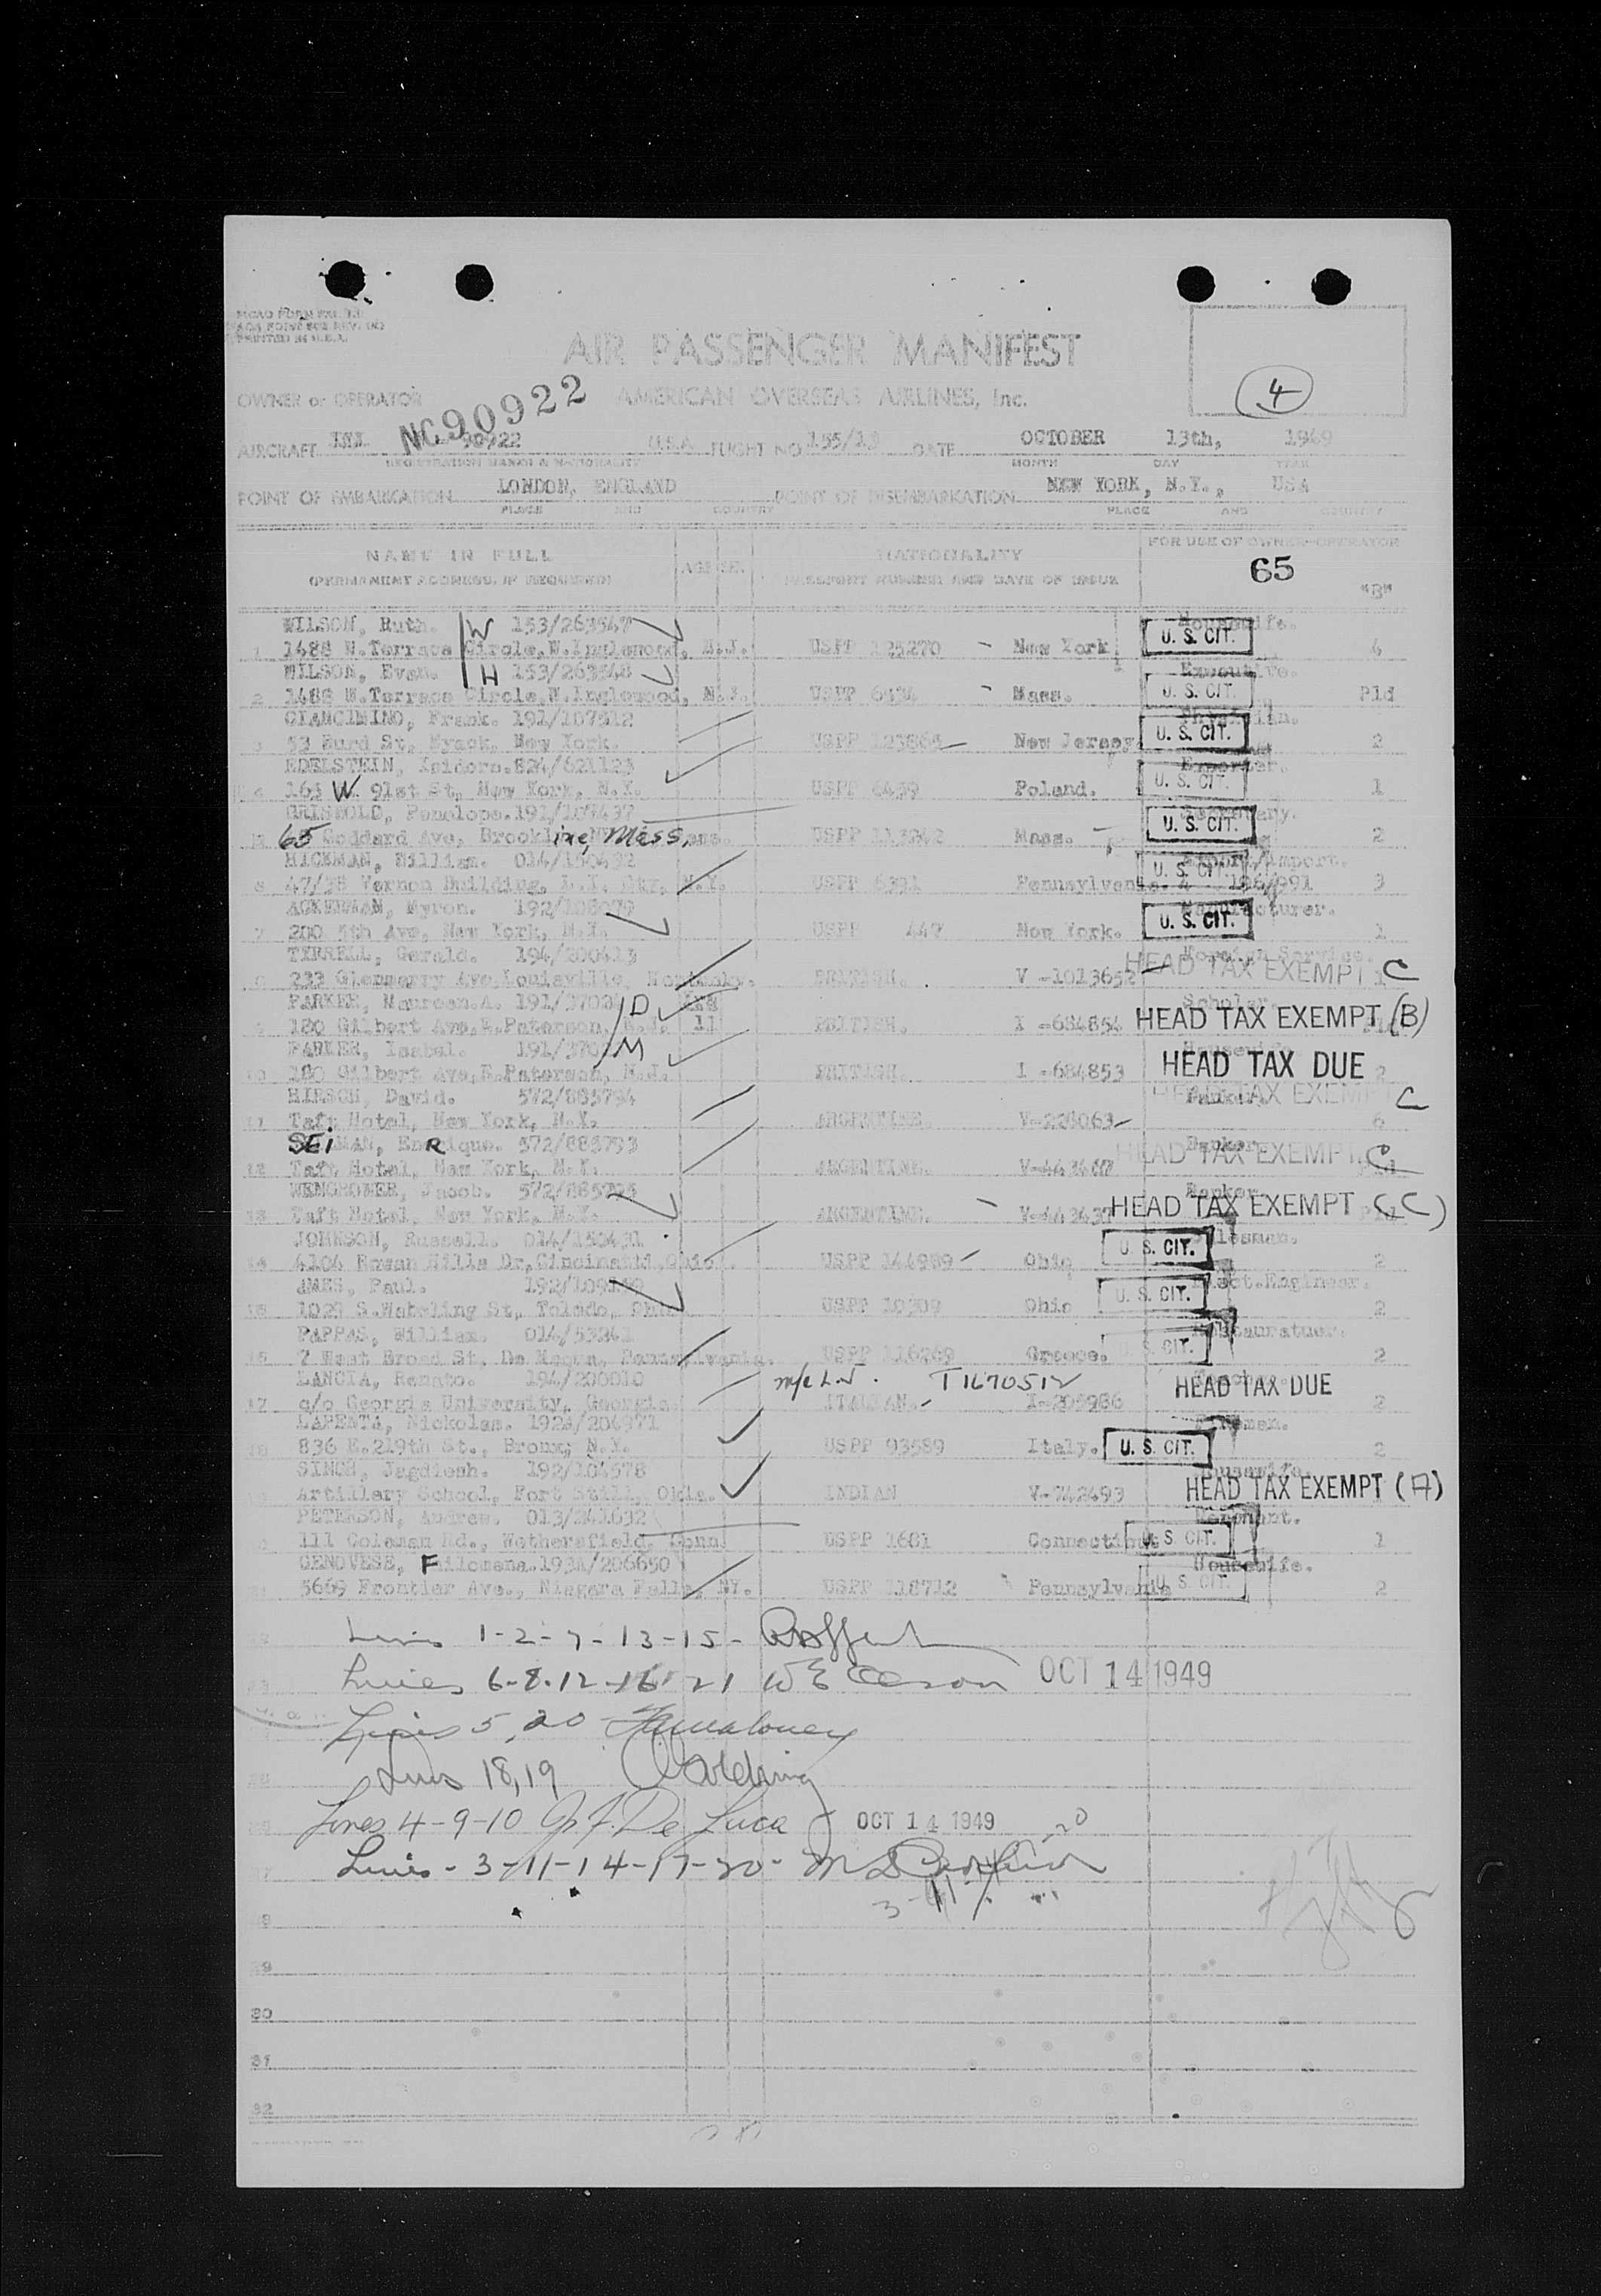 AIR PASSENGER MANIFEST
4
OWNER or OPERATOR AMERICAN OVERSEAS AIRLINES, Inc.
NC90922
AIRCRAFT 90922 U.S.A. FLIGHT NO 155/13 DATE OCTOBER 13th, 1949
REGISTRATION MARKS & NATIONALITY MONTH DAY YEAR
POINT OF EMBARKATION LONDON, ENGLAND POINT OF DISEMBARKATION NEW YORK, N.Y., USA
PLACE AND COUNTRY PLACE AND COUNTRY
NAME IN FULL AGE SEX NATIONALITY FOR USE OF OWNER-OPERATOR
(PERMANENT ADDRESS, IF REQUIRED) PASSPORT NUMBER AND DATE OF ISSUE 65 "B"
WILSON, Ruth. W 153/263547 Housewife.
1 1488 W.Terrace Circle, W.Inglewood, N.J. USPP 125270 - New York U. S. CIT. 4
WILSON, Evan. H 153/263548 Executive.
2 1488 W.Terrace Circle, W.Inglewood, N.J. USPP 6434 - Mass. U. S. CIT. Pld
CIANCIMINO, Frank. 191/107512 Physician.
3 53 Burd St, Nyack, New York. USPP 123864 New Jersey U. S. CIT. 2
EDELSTEIN, Isidore. 824/621123 Exporter.
4 163 W 91st St, New York, N.Y. USPP 6459 Poland. U. S. CIT. 1
GRISWOLD, Penelope. 191/107437 Secretary.
65 Goddard Ave, Brookline, Mass. USPP 113242 Mass. U. S. CIT. 2
HICKMAN, William. 014/150432 Export/Import.
6 47/38 Vernon Building, L.I. City, N.Y. USPP 6391 Pennsylvania. U. S. CIT. 3
ACKERMAN, Myron. 192/108079 Manufacturer.
7 200 5th Ave, New York, N.Y. USPP 447 New York. U. S. CIT. 1
TERRELL, Gerald. 194/200413 Foreign Service.
8 233 Glenmarry Ave, Louisville, Kentucky. BRITISH. V -1013652 HEAD TAX EXEMPT C 1
PARKER, Maureen.A. 191/3702 D Scholar.
9 180 Gilbert Ave, E.Paterson, N.J. 11 BRITISH. I -684854 HEAD TAX EXEMPT (B)
PARKER, Isabel. 191/370 M Housewife
10 180 Gilbert Ave, E.Paterson, N.J. BRITISH. I -684853 HEAD TAX DUE 2
HIRSCH, David. 572/885794 Banker. HEAD TAX EXEMPT C
11 Taft Hotel, New York, N.Y. ARGENTINE. V-228063 6
SEI MAN, EnRique. 572/885793 Banker
12 Taft Hotel, New York, N.Y. ARGENTINE. V-443467 HEAD TAX EXEMPT C
WENGROWER, Jacob. 572/885795 Banker
13 Taft Hotel, New York, N.Y. ARGENTINE. V-443437 HEAD TAX EXEMPT (C)
JOHNSON, Russell. 014/150431 Salesman.
14 4104 Rowan Hills Dr, Cincinatti, Ohio. USPP 144989 Ohio U. S. CIT. 2
AMES, Paul. 192/109189 Elect.Engineer.
15 1029 S.Wabeling St, Toledo, Ohio. USPP 10309 Ohio U. S. CIT. 2
PAPPAS, William. 014/53241 Restauratuer.
16 7 West Broad St, Pennsylvania. USPP 116269 Greece. S. CIT. 2
LANCIA, Renato. 194/200010 T1670512 Teacher.
17 c/o Georgia University, Georgia ITALIAN. I-205986 HEAD TAX DUE 2
LAPENTA, Nickolas. 192A/204971
18 836 E.219th St., Bronx, N.Y. USPP 93589 Italy. U. S. CIT. 2
SINGH, Jagdiesh. 192/104578 Housewife
Artillery School, Fort Still, Okla. INDIAN V-742493 HEAD TAX EXEMPT (A)
PETERSON, Andrew. 013/241632 Merchant.
111 Coleman Rd., Wethersfield, Conn. USPP 1681 Connecticut U. S. CIT. 1
GENOVESE, Filomena. 193A/206650 Housewife.
21 5669 Frontier Ave., Niagara Falls, NY. USPP 118712 Pennsylvania U. S. CIT. 2
Lines 1-2-7-13-15-
Lines 6-8-12-16 21 W E Olson OCT 14 1949
Lines 5, 20
Lines 18,19
Lines 4-9-10 J. De Luca OCT 14 1949
Lines - 3-11-14-17-20-
29
30
31
32